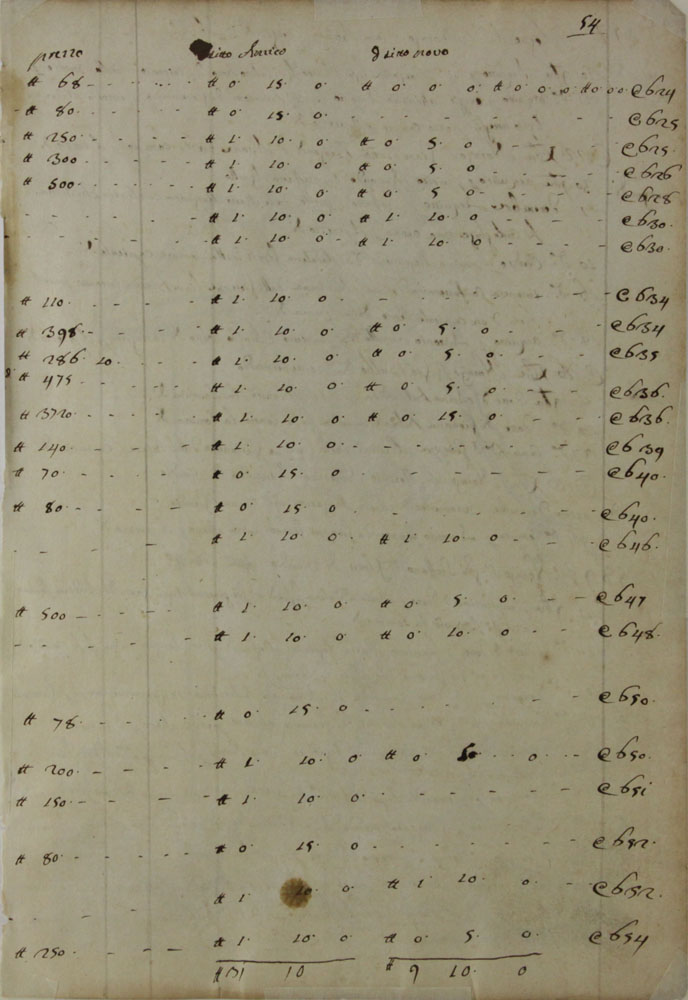 54
prezzo Antico novo
# 68 - - - - # 0 15 0 # 0 0 0 # 0 0 0 # 0 0 0 c 624
# 80 - - - - # 0 15 0 - - - - - c 625
# 250 - - - - # 1 10 0 # 0 5 0 - - - c 625
# 300 - - - - # 1 10 0 # 0 5 0 - - - c 626
# 500 - - - - # 1 10 0 # 0 5 0 - - - c 628
- - - - - # 1 10 0 # 1 10 0 - - - c 630
- - - - - # 1 10 0 # 1 10 0 - - - c 630
# 110 - - - - # 1 10 0 - - - - - c 634
# 398 - - - - # 1 10 0 # 0 5 0 - - - c 634
# 286 10 - - - # 1 10 0 # 0 5 0 - - - c 635
# 475 - - - - # 1 10 0 # 0 5 0 - - - c 636
# 3720 - - - - # 1 10 0 # 0 15 0 - - - c 636
# 140 - - - - # 1 10 0 - - - - - c 639
# 70 - - - - # 0 15 0 - - - - - c 640
# 80 - - - - # 0 15 0 - - - - - c 640
- - - - - # 1 10 0 # 1 10 0 - - - c 646
# 500 - - - - # 1 10 0 # 0 5 0 - - - c 647
- - - - - # 1 10 0 # 0 10 0 - - - c 648
# 78 - - - - # 0 15 0 - - - - - c 650
# 200 - - - - # 1 10 0 # 0 5 0 - - - c 650
# 150 - - - - # 1 10 0 - - - - - c 651
# 80 - - - - # 0 15 0 - - - - - c 652
- - - - - # 1 10 0 # 1 10 0 - - - c 652
# 250 - - - - # 1 10 0 # 0 5 0 - - - c 654
# 31 10 # 9 10 0